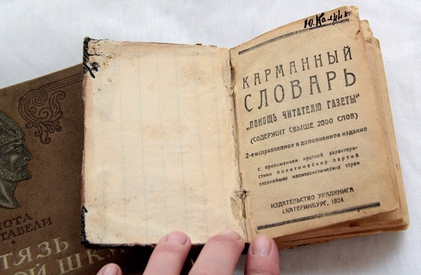 Ю. Калрин
КАРМАННЫЙ
СЛОВАРЬ
„ПОМОЩЬ ЧИТАТЕЛЮ ГАЗЕТЫ“
(СОДЕРЖИТ СВЫШЕ 2000 СЛОВ)
2-е исправленное и дополненное издание
с приложением краткой характери-
стики политических партий
главнейших капиталистических стран
ИЗДАТЕЛЬСТВО УРАЛКНИГА
ЕКАТЕРИНБУРГ, 1924
ШОТА
СТАВЕЛИ
ТЯЗЬ
ОЙ ШК